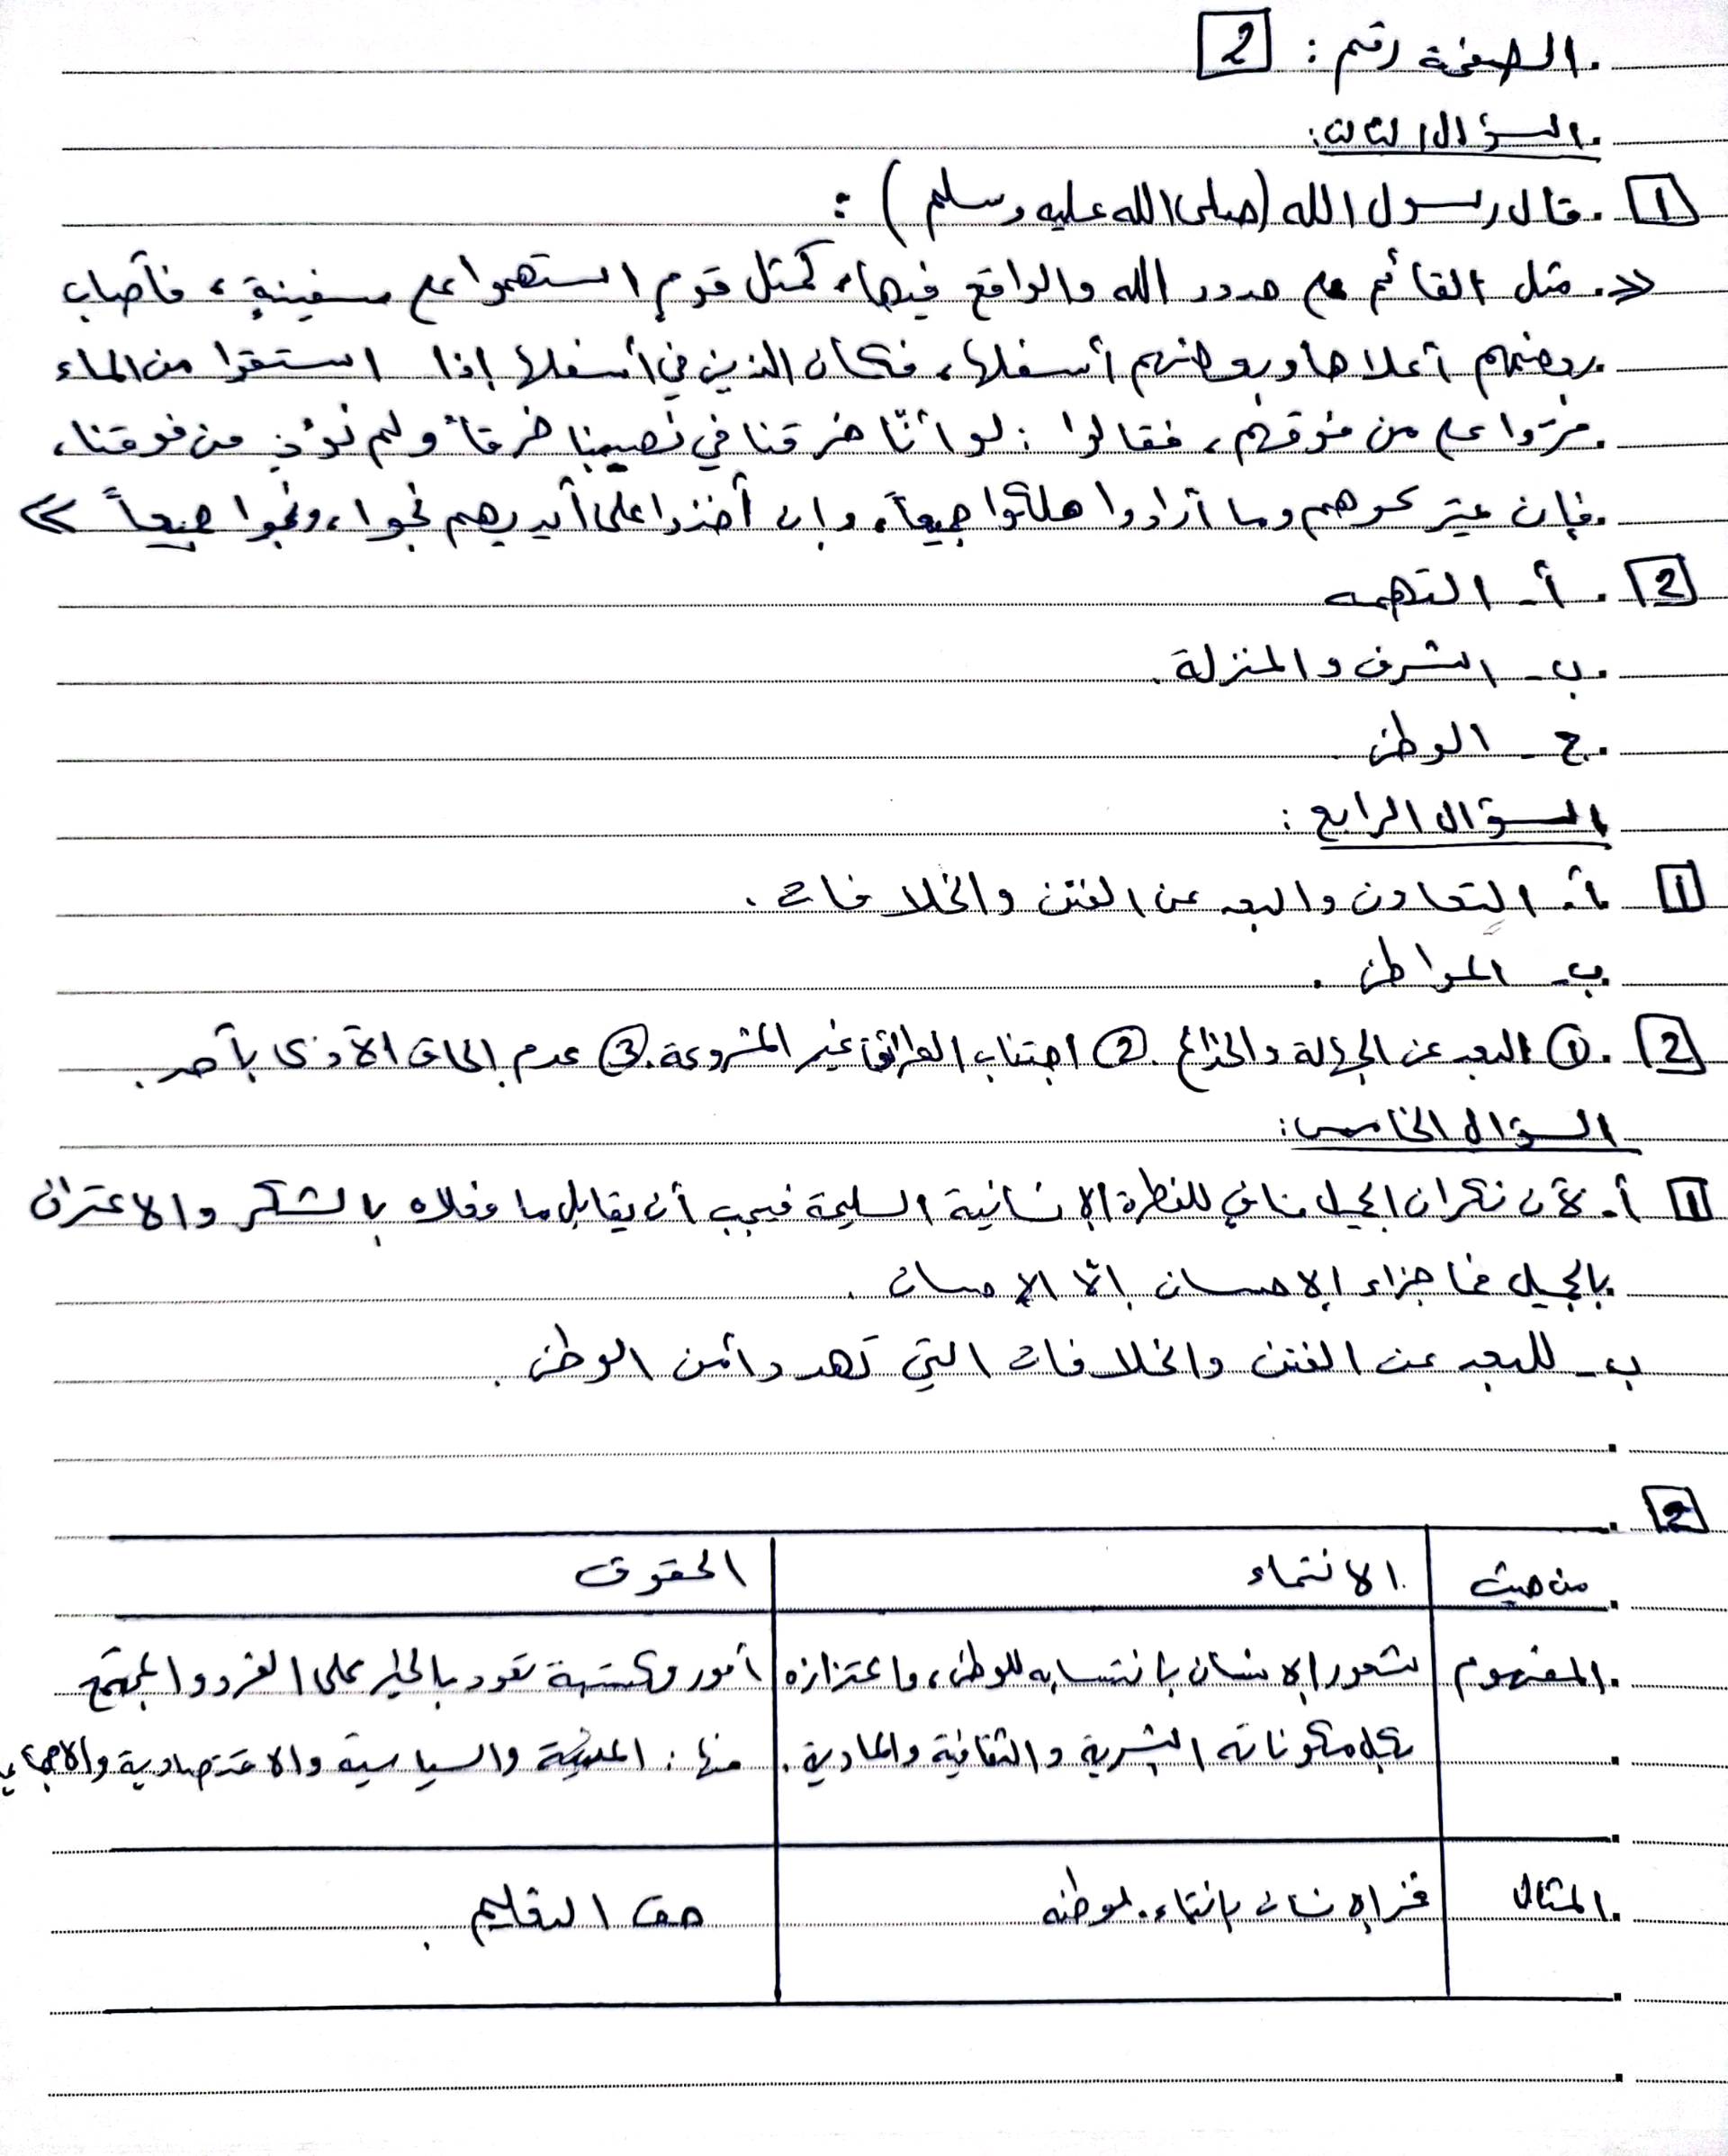 الصفحة رقم : 2
السؤال الثالث:
1 قال رسول الله (صلى الله عليه وسلم) :
« مثل القائم على حدود الله والواقع فيها، كمثل قوم استهموا على سفينةٍ، فأصاب
بعضهم أعلاها وبعضهم أسفلها، فكان الذين في أسفلها إذا استقوا من الماء
مرّوا على من فوقهم، فقالوا : لو أنّا خرقنا في نصيبنا خرقاً ولم نؤذِ من فوقنا،
فإن يتركوهم وما أرادوا هلكوا جميعاً، وإن أخذوا على أيديهم نجوا، ونجوا جميعاً »
2 أ- التهمه
ب- الشرف والمنزلة.
ج- الوطن
السؤال الرابع :
1 أ- التعاون والبعد عن الفتن والخلافات .
ب- المواطن .
2 ① البعد عن الجهالة والخداع . ② اجتناب الطرائق غير المشروعة. ③ عدم إلحاق الأذى بأحد .
السؤال الخامس:
1 أ- لأن نكران الجميل منافي للفطرة الإنسانية السليمة فيجب أن يقابل ما فعلاه بالشكر والاعتراف
بالجميل فما جزاء الإحسان إلّا الإحسان .
ب- للبعد عن الفتن والخلافات التي تهدد أمن الوطن .
2
من حيث الانتماء الحقوق
المفهوم شعور الإنسان بانتسابه للوطن، واعتزازه أمور مكتسبة تعود بالخير على الفرد والمجتمع
بكل مكوناته البشرية والثقافية والمادية . منها : المدنية والسياسية والاقتصادية والاجتماعي
المثال فخر الإنسان بانتماءه لوطنه حق التعليم .